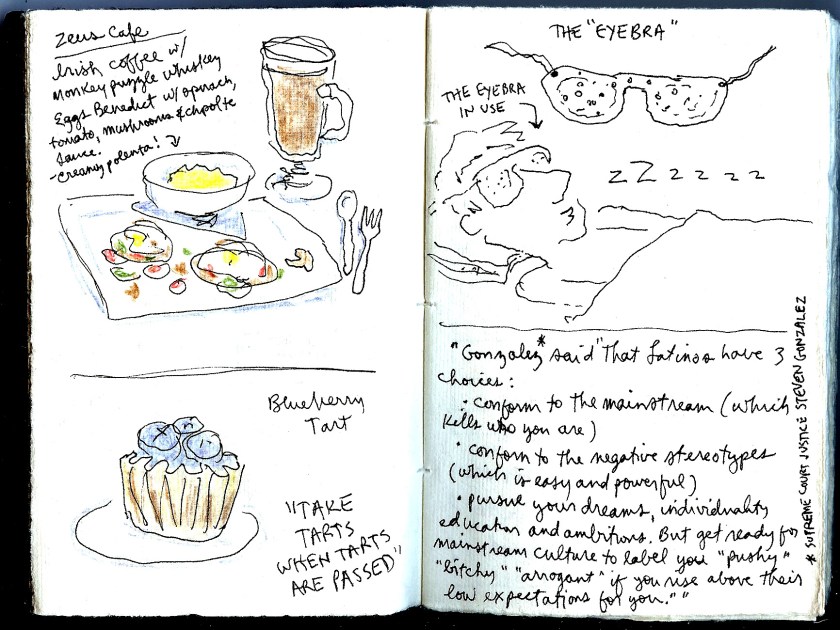 Zeus Cafe
Irish coffee w/
monkey puzzle whiskey
Eggs Benedict w/ spinach,
tomato, mushrooms & chpolte
sauce.
- creamy polenta!
Blueberry
Tart
"TAKE
TARTS
WHEN TARTS
ARE PASSED"
THE "EYEBRA"
THE EYEBRA
IN USE
z Z z z z z
"Gonzalez* said "That Latinos have 3
choices:
• conform to the mainstream (which
kills who you are)
• conform to the negative stereotypes
(which is easy and powerful)
• pursue your dreams, individuality
education and ambitions. But get ready for
mainstream culture to label you "pushy"
"bitchy" "arrogant" if you rise above their
low expectations for you.""
* SUPREME COURT JUSTICE STEVEN GONZALEZ